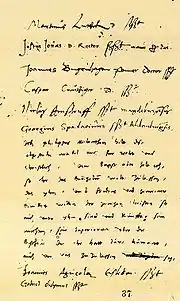 Martinus Luther D sspt
Justus Jonas D. Rector sspt manu
Joannes Bugenhagen Pomer Doctor sspt
Caspar Creutziger D. sspt
Niclas Amsdorff sspt Magdeburgensis
Georgius Spalatinus sspt Altenburgensis
Ich Philippus Melanthon halt diese
obgestalte artikel auch fur recht und
christlich, vom Bapst aber halt ich,
so er das Evangelium wolte zulassen,
das yhm umb fridens und gemeiner
einikeit willen der jenigen christen so
auch unter yhm sind und kunfftig sein
mochten, sein superioritet uber die
Bischove die er hatt iure humano,
auch von uns zuzulassen sey
Joannes Agricola Eisleben sspt
Gabriel Didymus sspt